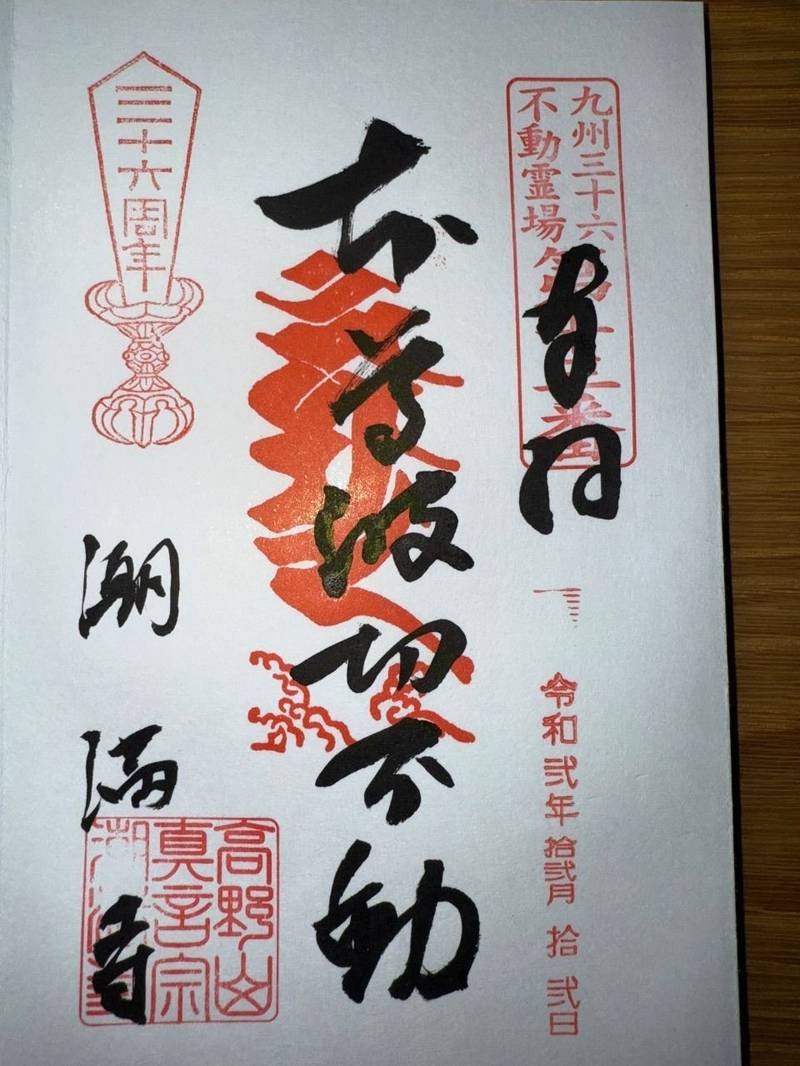 九州三十六
不動霊場第
番
奉
令和弐年拾弐月拾弐日
本尊波切不動
三十六周年
潮満寺
高野山
真言宗
潮満寺